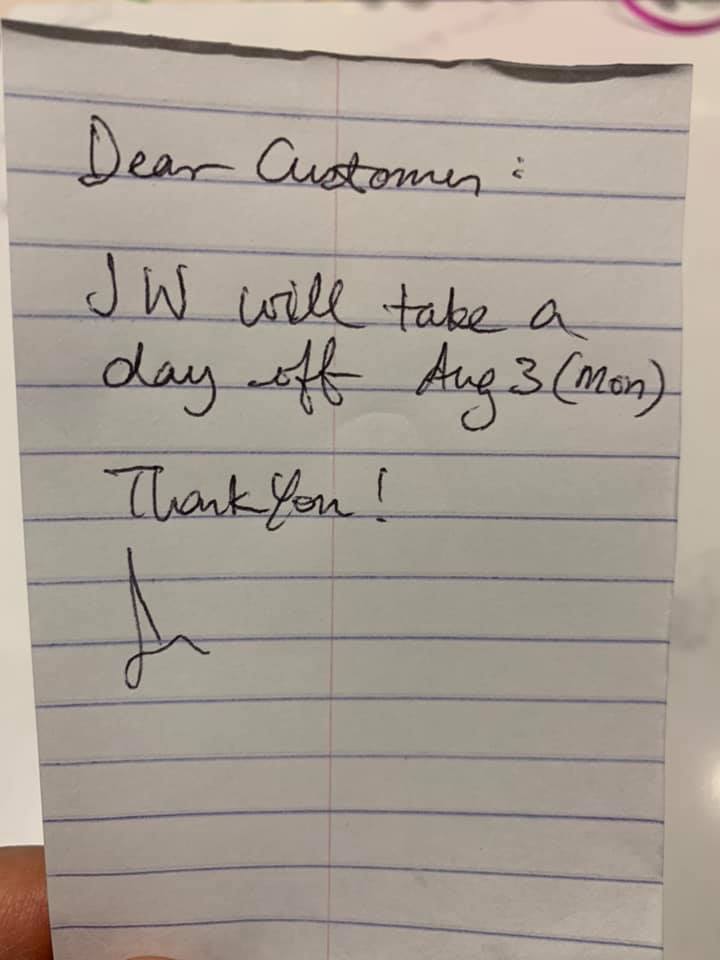 Dear Customer :
JW will take a
day off Aug 3 (Mon)
Thank You !